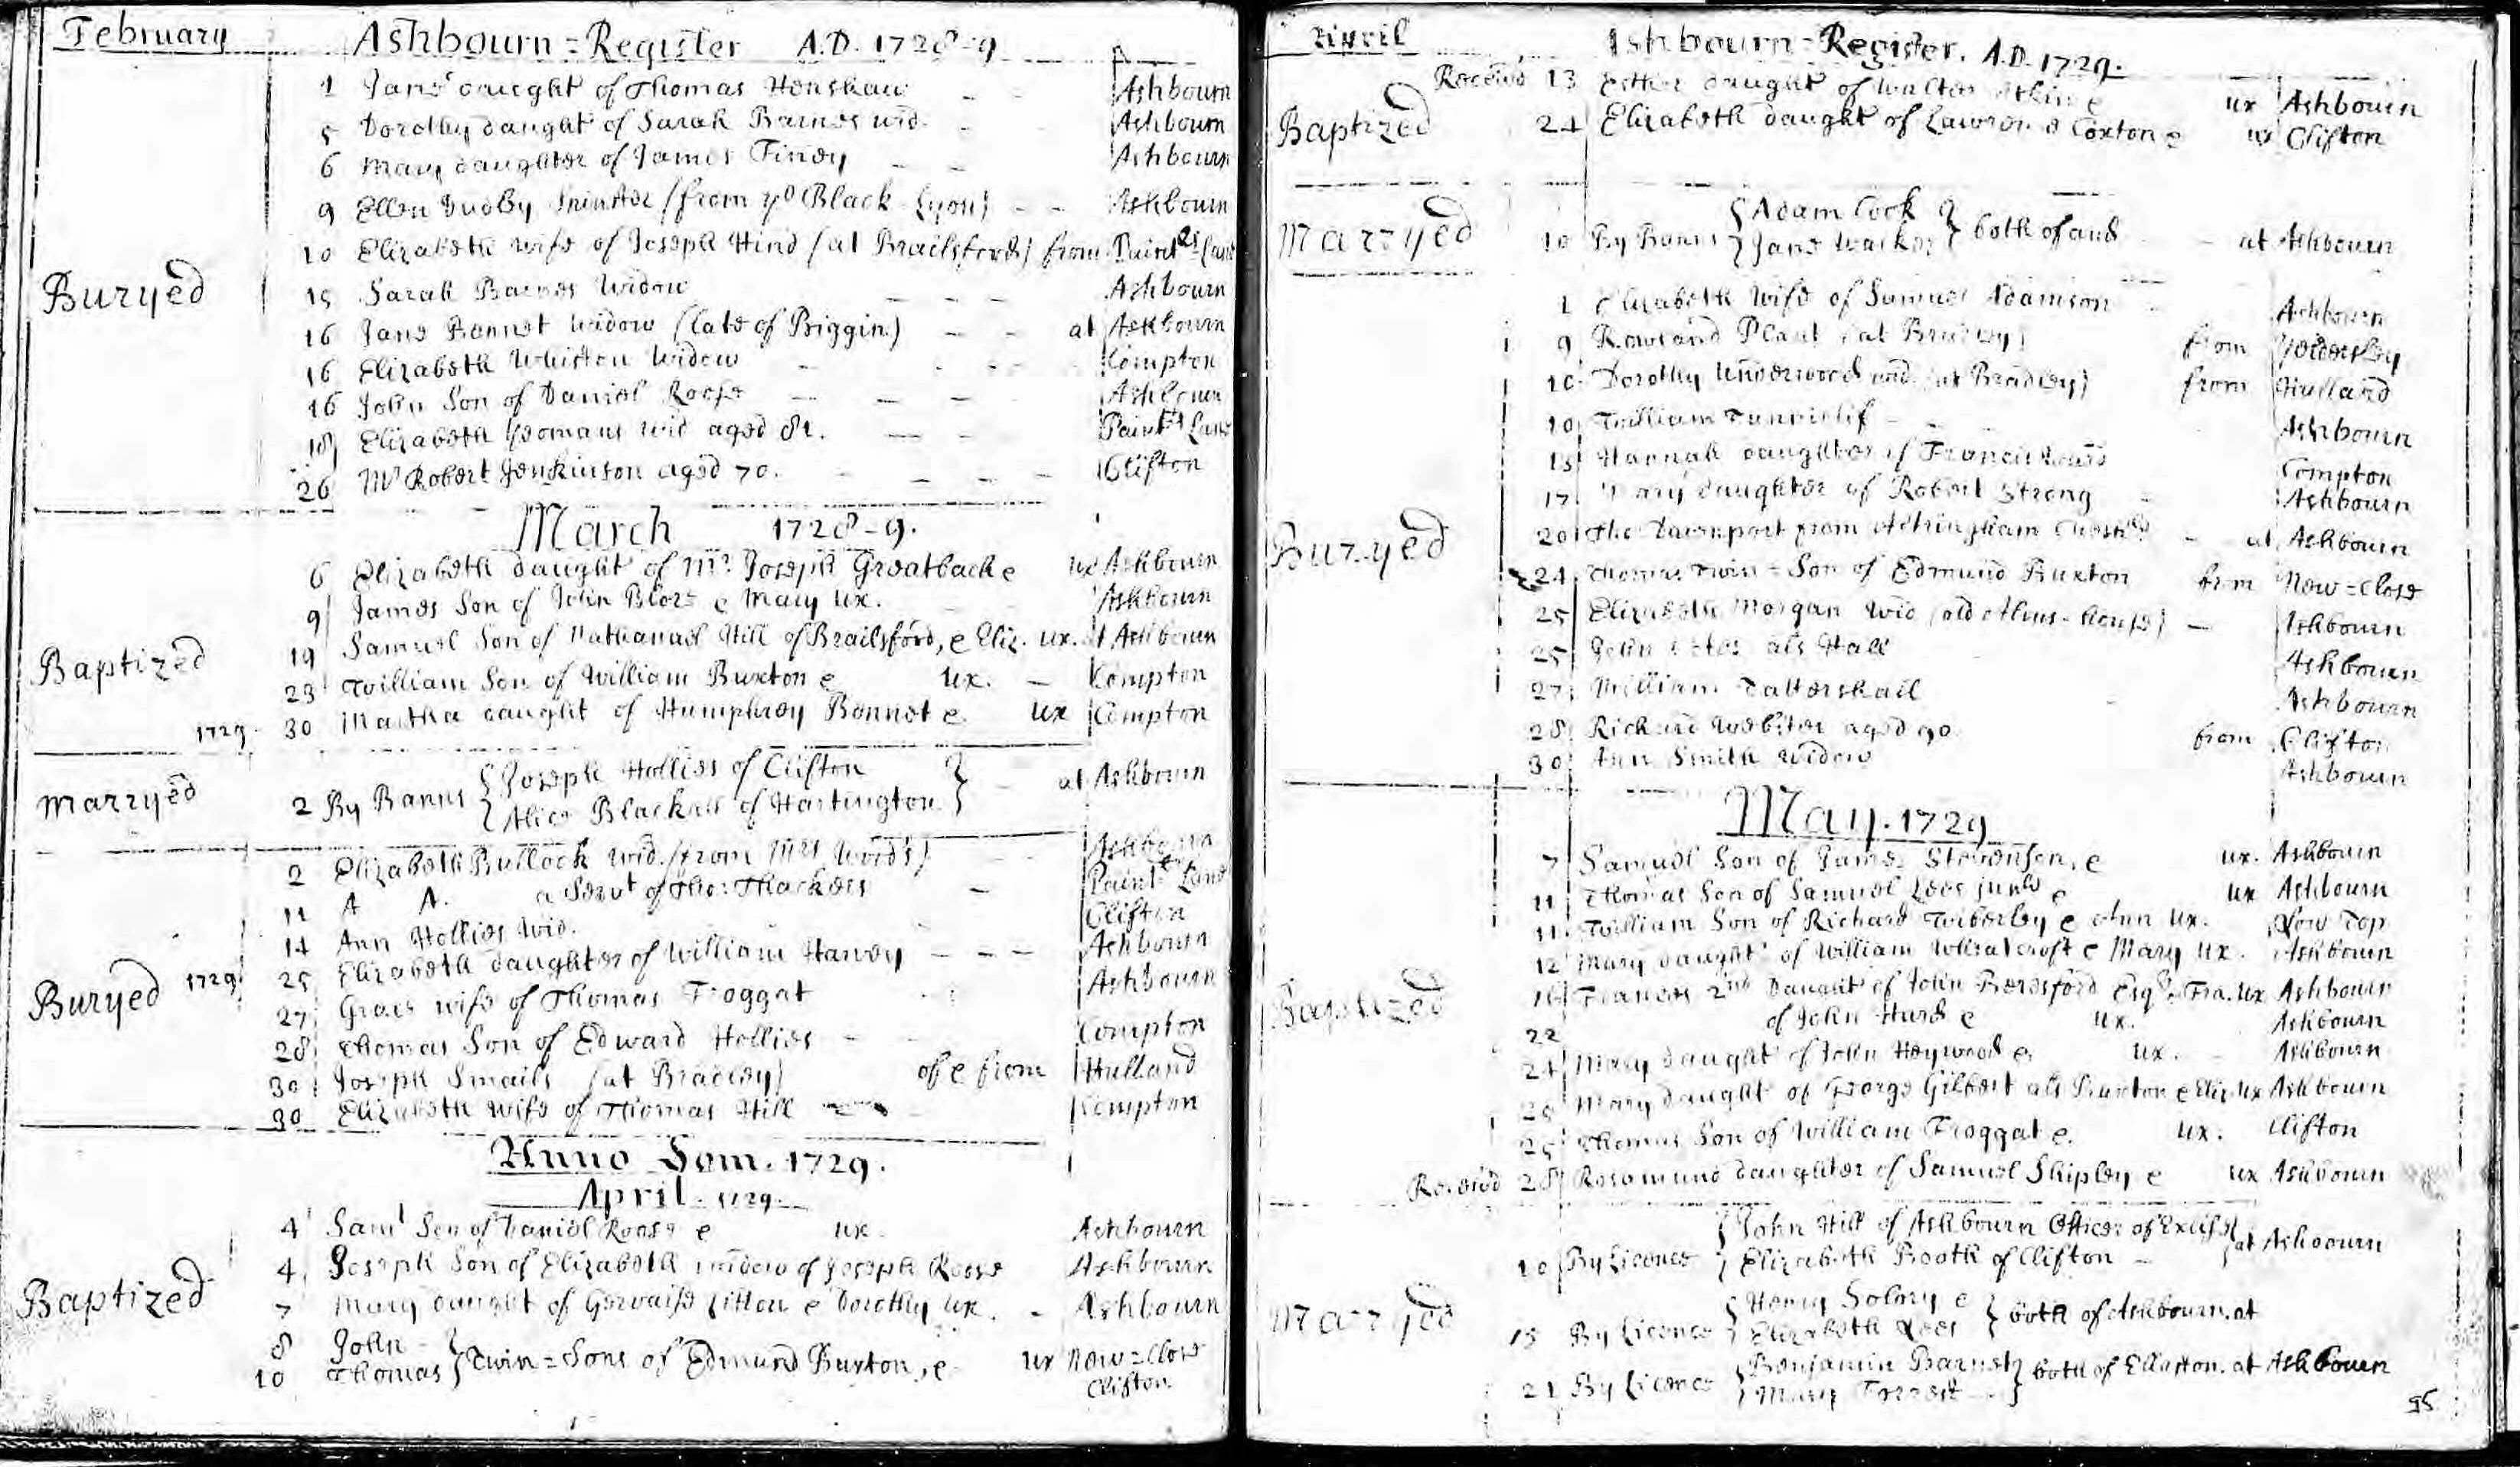 February Ashbourn = Register A.D. 1728-9
1 Jane daught of Thomas Henshaw Ashbourn
5 Dorothy daught of Sarah Barnes wid. Ashbourn
6 Mary daughter of James Finey Ashbourn
9 Ellen Spinster (from ye Black Lyon) Ashbourn
10 Elizabeth wife of Joseph Hind (at Brailsford) from Paintrs Lane
Buryed
15 Sarah Barnes Widow Ashbourn
16 Jane Bennet Widow (late of Biggin) at Ashbourn
16 Elizabeth Whiston Widow Compton
16 John Son of Daniel Roose Ashbourn
18 Elizabeth Yeomans wid aged 81. Paintrs Lane
26 Mr Robert Jenkinson aged 70. Clifton
March 1728-9.
6 Elizabeth daught of Mr. Joseph Greatback e ux Ashbourn
9 James Son of John Blore e Mary ux. Ashbourn
19 Samuel Son of Nathanael Hill of Brailsford, e Eliz. ux. at Ashbourn
Baptized
23 William Son of William Buxton e ux. Compton
1729. 30 Martha daught of Humphrey Bennet e ux Compton
Marryed 2 By Banns { Joseph Hollies of Clifton } at Ashbourn
{ Alice Blackall of Hartington }
2 Elizabeth Bullock wid. (from Mrs Words) Ashbourn
11 A A. a Servt of Tho: Thackers Paintrs Lane
14 Ann Hollies wid. Clifton
Buryed 1729 25 Elizabeth daughter of William Harvey Ashbourn
27 Grace wife of Thomas Froggat Ashbourn
28 Thomas Son of Edward Hollies Compton
30 Joseph Smails (at Bradley) of e from Hulland
30 Elizabeth wife of Thomas Hill Compton
Anno Dom. 1729.
April. 1729.
4 Saml Son of Daniel Roose e ux. Ashbourn
4 Joseph Son of Elizabeth widow of Joseph Roose Ashbourn
Baptized
7 Mary daught of Gervaise e Dorothy ux. Ashbourn
8 John }
10 Thomas } Twin = Sons of Edmund Buxton, e ux New = Close
Clifton
April Ashbourn = Register. A.D. 1729.
Received 13 Esther daught of Walter e ux Ashbourn
Baptized 24 Elizabeth daught of Lawrence Coxton e ux Clifton
Marryed 10 By Banns { Adam Cock } both of and at Ashbourn
{ Jane Walker }
1 Elizabeth Wife of Samuel Adamson Ashbourn
9 Rowland Plant (at Bradley) from Yeldersley
10 Dorothy Underwood wid. (at Bradley) from Hulland
10 William Tunniclif Ashbourn
15 Hannah daughter of Francis Compton
17 Mary daughter of Robert Strong Ashbourn
20 Tho Davenport from Altringham at Ashbourn
Buryed
24 Thomas Twin = Son of Edmund Buxton from New = Close
25 Elizabeth Morgan wid (old Alms-house) Ashbourn
25 John als Hall Ashbourn
27 William Tattershall Ashbourn
28 Richard Webster aged 90 from Clifton
30 Ann Smith widow Ashbourn
May. 1729
7 Samuel Son of James Stevenson, e ux. Ashbourn
11 Thomas Son of Samuel Lees junr e ux Ashbourn
11 William Son of Richard Wiberley e Ann ux. Top
12 Mary daught of William Wheatcroft e Mary ux. Ashbourn
Baptized 16 Frances 2nd Daught of John Beresford Esqr e Fra. ux Ashbourn
22 of John Hurd e ux. Ashbourn
24 Mary daught of John Heywood e ux. Ashbourn
25 Mary daught of George Gilbert als Buxton e Eliz ux Ashbourn
25 Thomas Son of William Froggat e. ux. Clifton
Received 28 Rosamund daughter of Samuel Shipley e ux Ashbourn
10 By Licence { John Hill of Ashbourn Officer of Excise } at Ashbourn
{ Elizabeth Booth of Clifton
Marryed 15 By Licence { Henry e } both of Ashbourn. at
{ Elizabeth Lees }
21 By Licence { Benjamin } both of Ellaston. at Ashbourn
{ Mary }
95